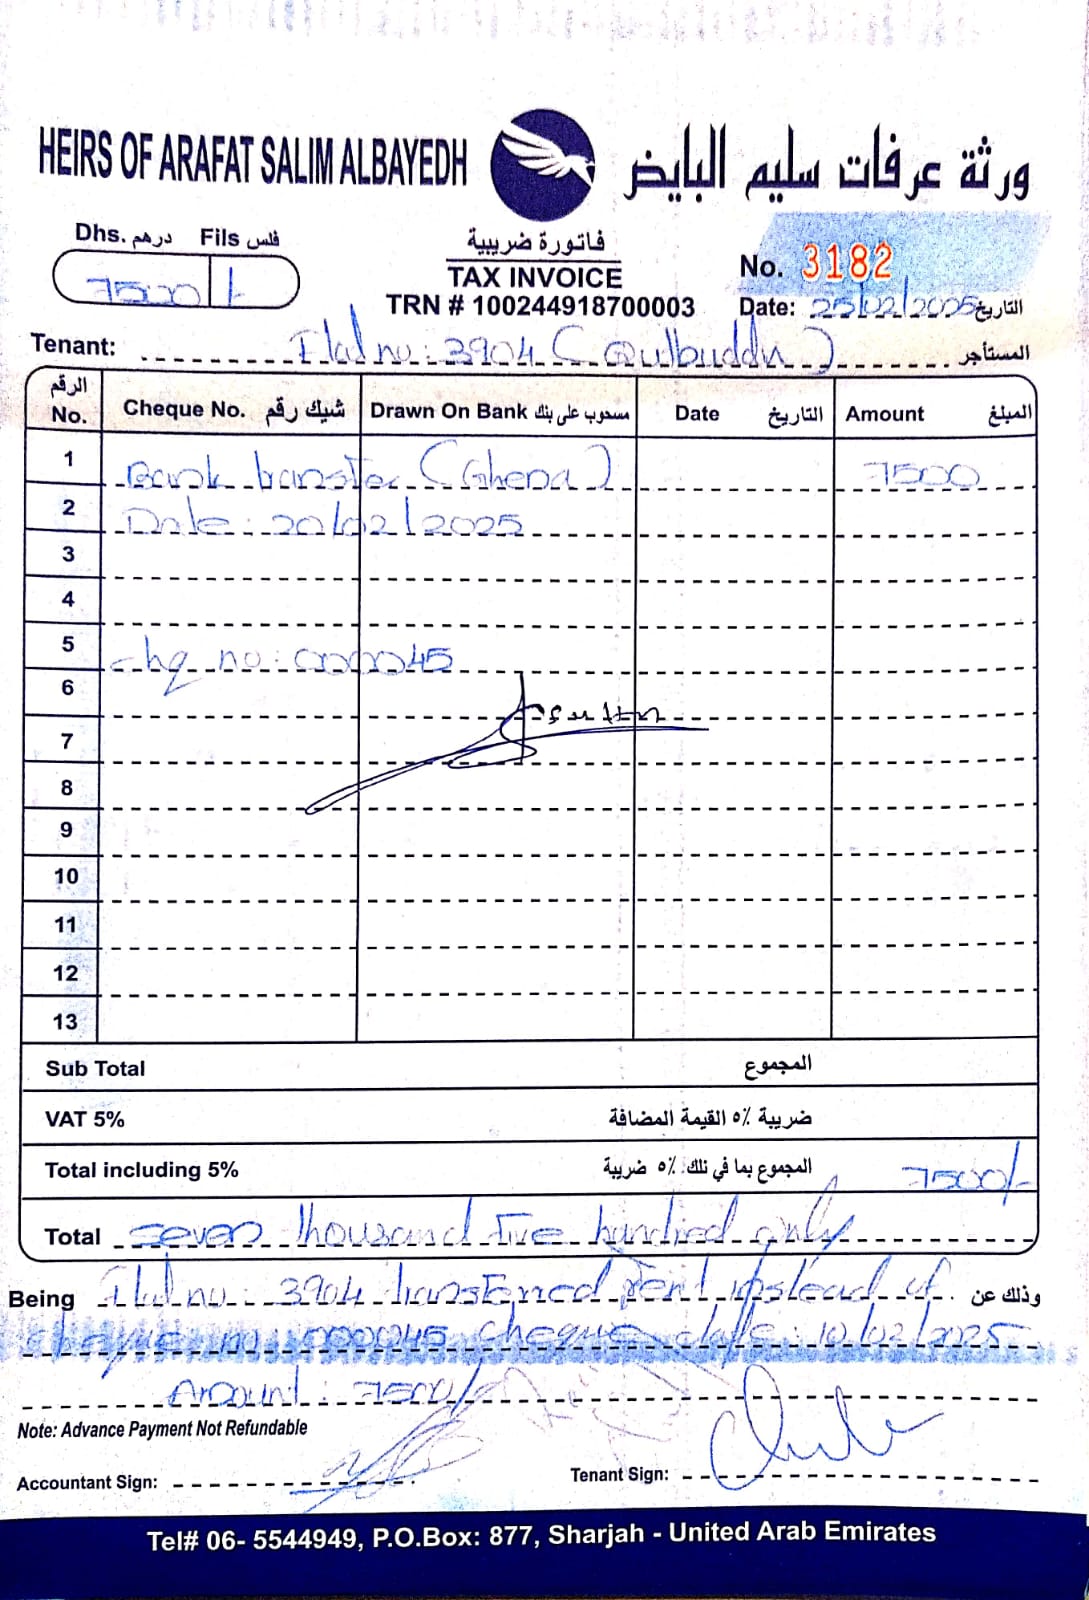 HEIRS OF ARAFAT SALIM ALBAYEDH ورثة عرفات سليم البايض
Dhs. درهم Fils فلس
7500 /-
فاتورة ضريبية
TAX INVOICE
TRN # 100244918700003
No. 3182
Date: 25/02/2025 التاريخ
Tenant: Flat no: 3904 (Qulbuddin) المستأجر
الرقم No. Cheque No. شيك رقم Drawn On Bank مسحوب على بنك Date التاريخ Amount المبلغ
1 Bank transfer (Ghena) 7500
2 Date: 20/02/2025
3
4
5 chq no: 000045
6
7
8
9
10
11
12
13
Sub Total المجموع
VAT 5% ضريبة ٥٪ القيمة المضافة
Total including 5% المجموع بما في ذلك ٥٪ ضريبة 7500/-
Total Seven thousand five hundred only
Being Flat no: 3904 transferred rent instead of وذلك عن
cheque no: 000045 cheque date: 10/02/2025
Amount: 7500/-
Note: Advance Payment Not Refundable
Accountant Sign: Tenant Sign:
Tel# 06- 5544949, P.O.Box: 877, Sharjah - United Arab Emirates